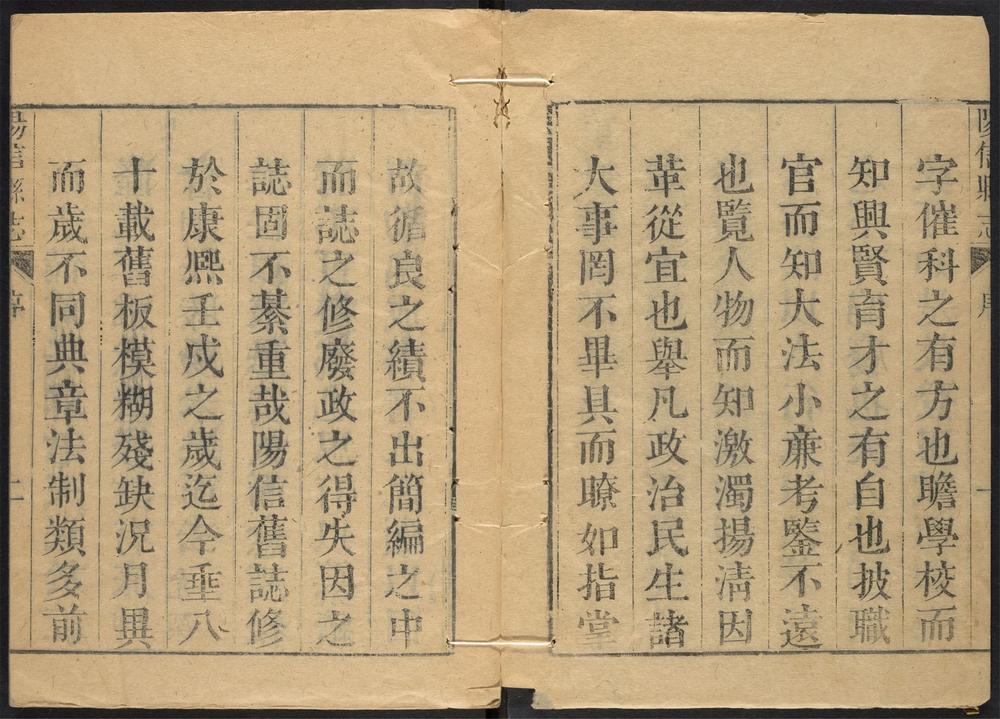 陽信縣志
序
一
字催科之有方也瞻學校而
知興賢育才之有自也披職
官而知大法小亷考鑒不遠
也覽人物而知激濁揚清因
革從宜也舉凡政治民生諸
大事罔不畢具而瞭如指掌
故循良之績不出簡編之中
而誌之修廢政之得失因之
誌固不綦重哉陽信舊誌修
於康熈壬戍之歲迄今垂八
十載舊板模糊殘缺況月異
而歲不同典章法制類多前
陽信縣志
序
二